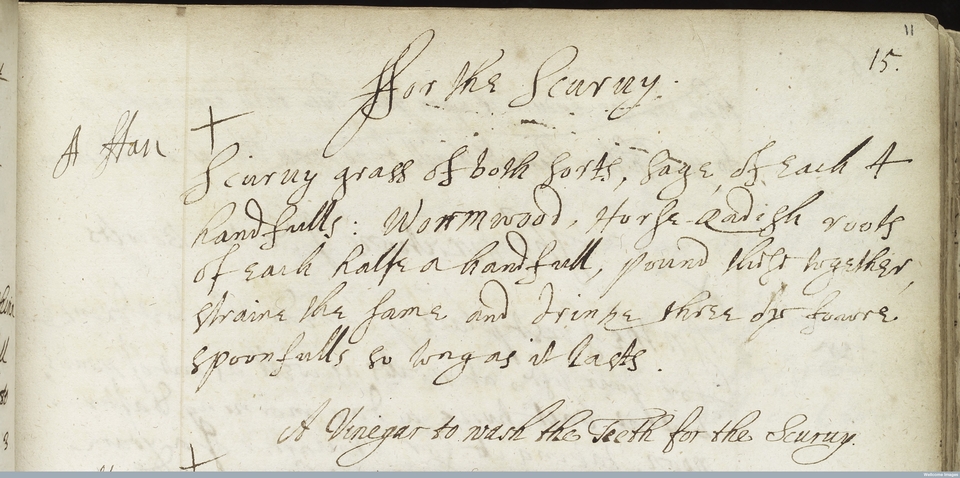 11
15.
ffor the Scurvy.
A ffan
Scurvy grass of both sorts, Sage, of Each 4
handfulls: Wormwood, Horse-Radish roots
of each halfe a handfull, pound these together,
straine the same and drinke three or foure
spoonfulls so long as it lasts.
A Vinegar to wash the Teeth for the Scurvy.